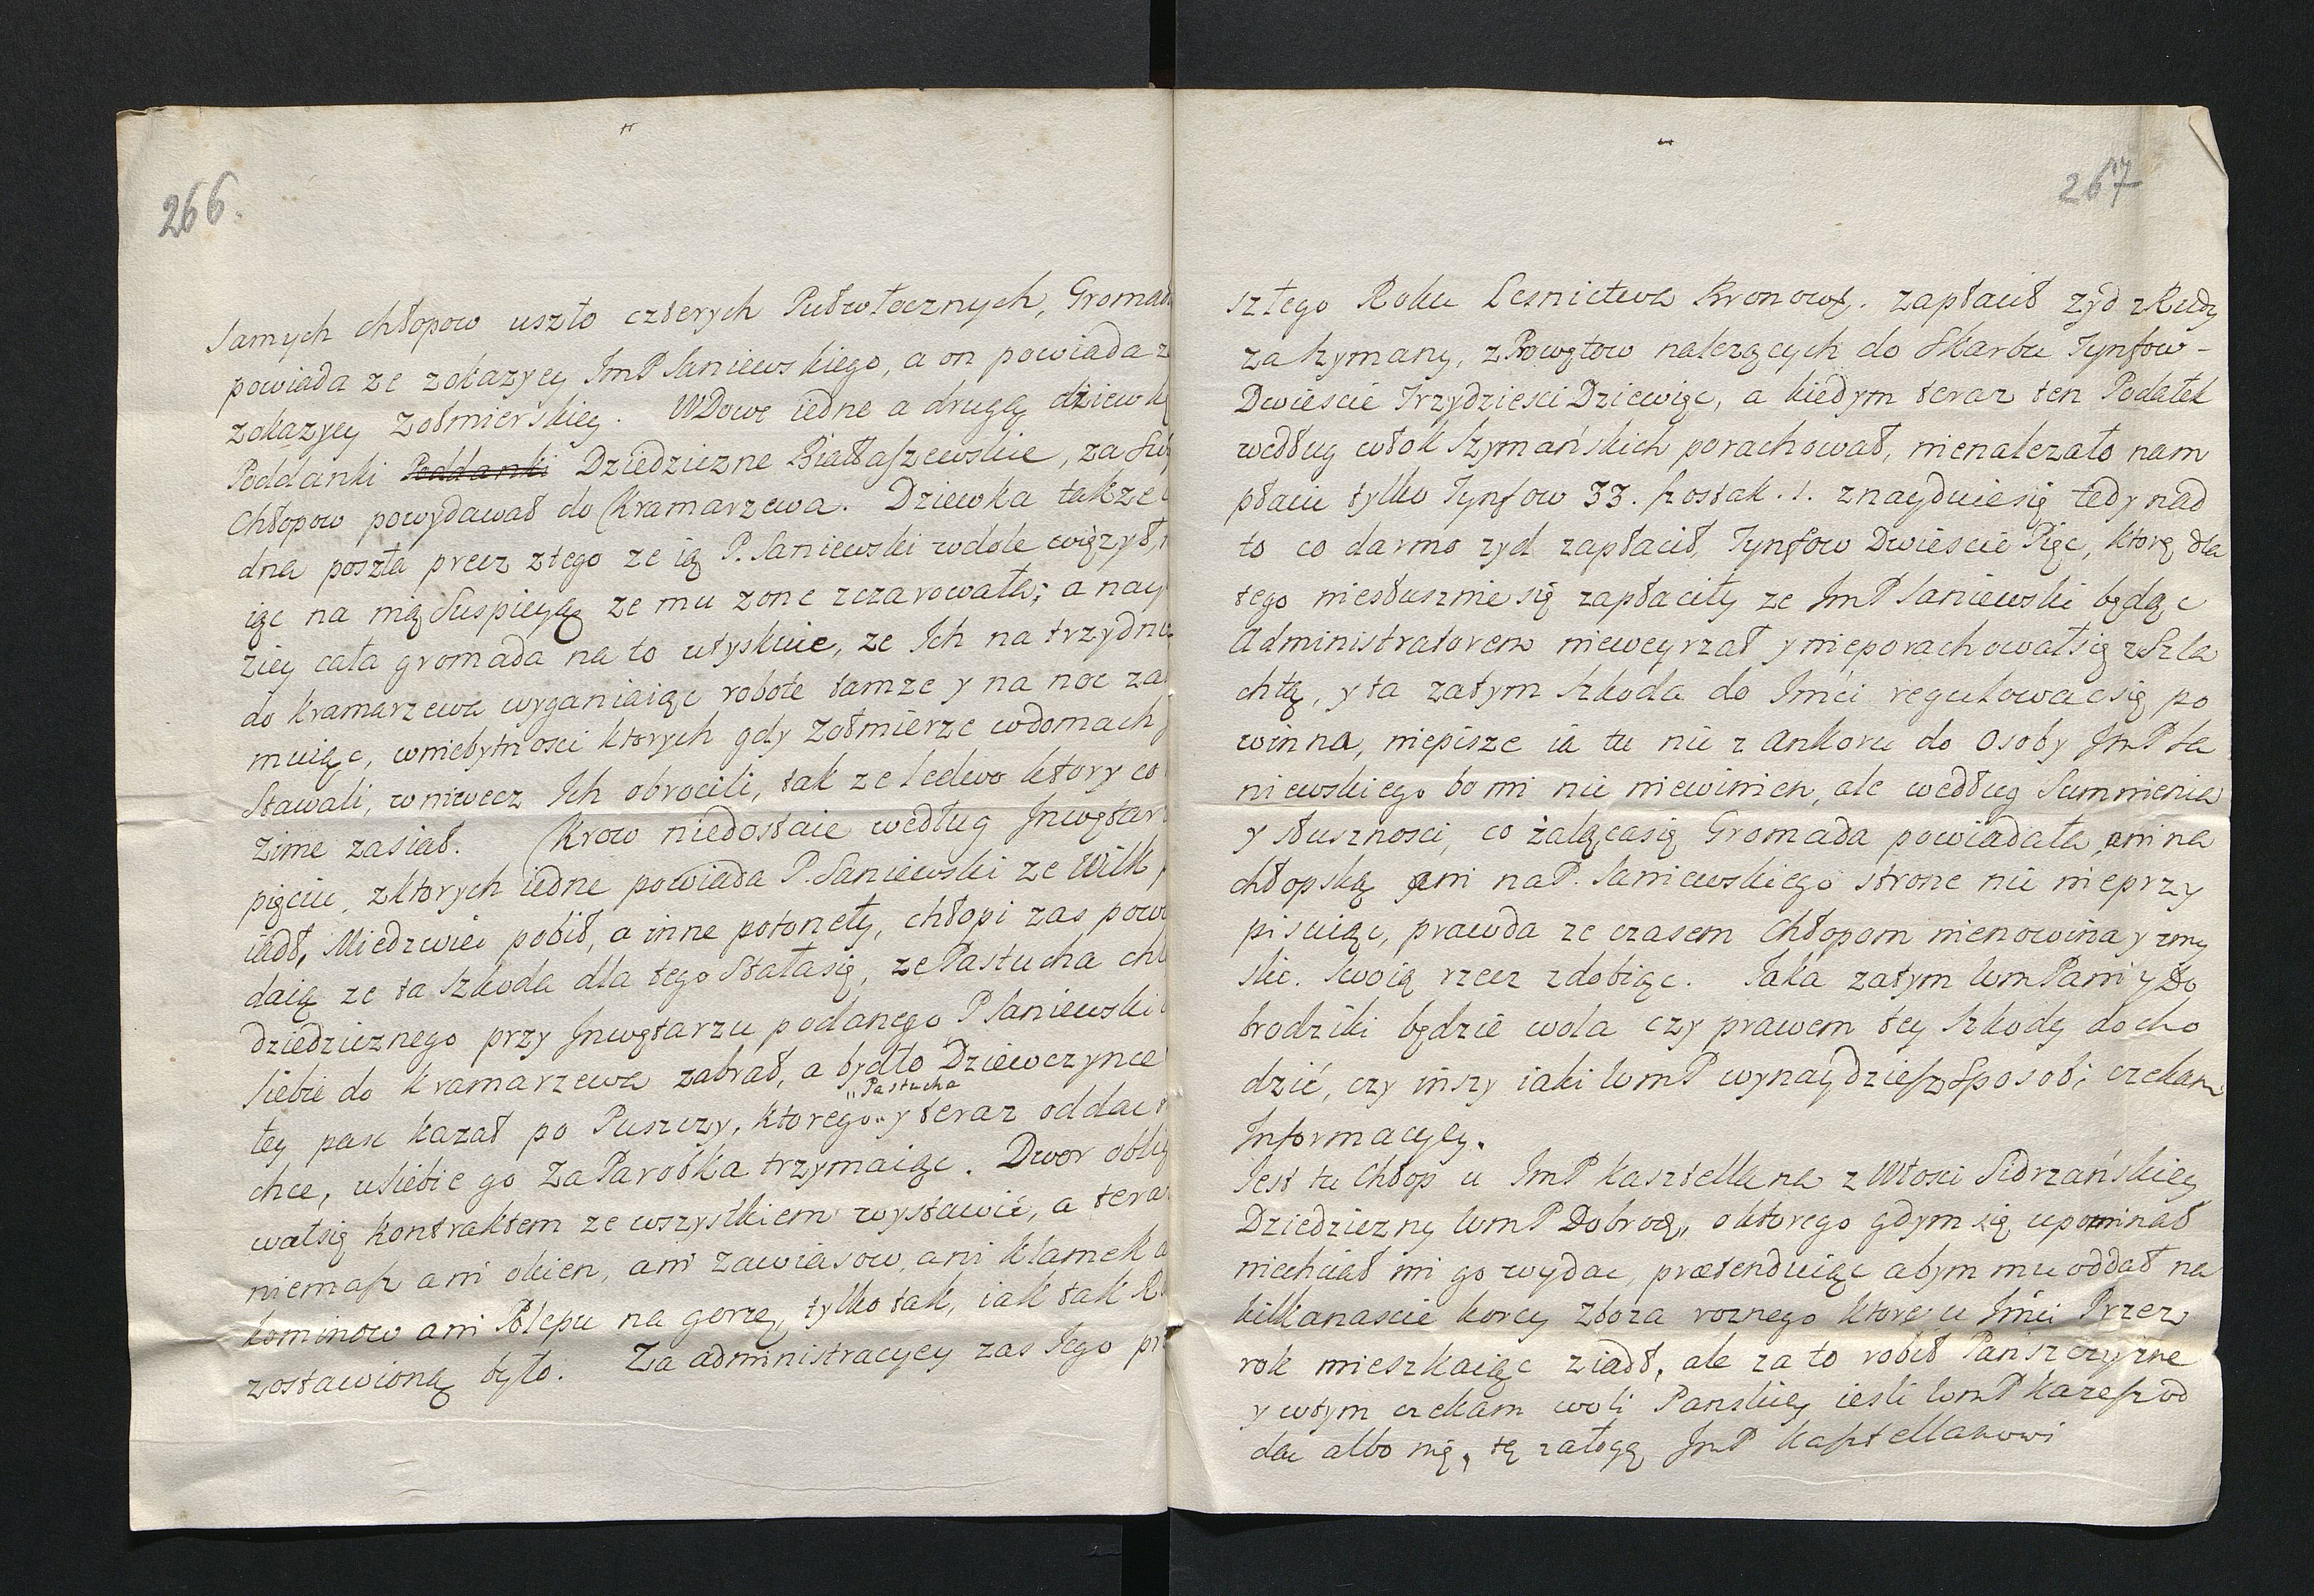 266.
samych chłopow uszło czterych Pułwłocznych, Gromad
powiada ze zokazycy ImP Saniewskiego, a on powiada z
zokazycy Zołmierskiey. WDowę iedne a drugą dziewkę
Poddanki Poddanki Dziedziczne Białłaszewskie, za
Chłopow powydawał do Kramarzewa. Dziewka takze
dna poszła precz ztego ze ią P. Saniewski wdole więzył,
iąc na nią Suspicyą ze mu zone zczarowała; a nay
ziey cała gromada na to utyskuie, ze Ich na trzydni
do Kramarzewa wyganiaiąc robote tamze y na noc za
muiąc, wniebytnosci ktorych gdy Zołmierze wdomach
Stawali, wniwecz Ich obrocili, tak ze ledwo ktory co
Zime zasiał. Krow niedostaie według Inwętar
pięciu, zktorych iedne powiada P. Saniewski ze Wilk
iadł, Miedzwiec pobił, a inne potonęły, chłopi zas powi
daią ze ta szkoda dla tego Stałasię, ze Pastucha chł
dziedzicznego przy Inwętarzu podanego P Saniewski
siebie do Kramarzewa zabrał, a bydło Dziewczynce
tey pasc kazał po Puszczy, ktorego „Pastucha y teraz oddac
chce, usiebie go Za Parobka trzymaiąc. Dwor oblig
wałsię kontraktem ze wszystkiem wystawić, a teraz
niemasz ani okien, ani zawiasow, ani klamek a
kominow ani Polepu na gorzę, tylko tak, iak tak R
zostawioną było. Za administracyey zas Iego pr
267
szłego Roku Lesnictwa Kronowę. zapłacił zyd z Rudy
zatrzymany, z Prowętow nalezących do Skarbu Tynfow-
Dwiescie Trzydziesci Dziewięc, a kiedym teraz ten Podatek
według włok Szymańskich porachował, nienalezało nam
płacic tylko Tynfow 33. szostak. 1. znayduiesię tedy nad
to co darmo zyd zapłacił, Tynfow Dwiescie Pięc, ktorę dla
tego niesłusznie się zapłaciły ze ImP Saniewski będąc
Administratorem nieweyrzał y nieporachowałsię z Szla
chtą, y ta zatym szkoda do Imci regulowacsię po
winna, niepisze ia tu nic z Ankoru do Osoby ImP Sa
niewskiego bo mi nic niewinien, ale według Sumnienia
y słusznosci, co żalącasię Gromada powiadała, ani na
chłopską ani na P. Saniewskiego strone nic nieprzy
pisuiąc, prawda ze czasem Chłopom nienowina y zmy
slic. Swoią rzecz zdobiąc. Iaka zatym WmPani y Do
brodziki będzie wola czy prawem tey szkody docho
dzić, czy inszy iaki WmP wynaydziesz Sposob; czekam
Informacyey.
Iest tu Chłop u ImP Kasztellana z Włosci Sidrzańskiey
Dziedziczny WmP Dobrodz, o ktorego gdym się upominał
niechciał mi go wydac, prætenduiąc abym mu oddał na
kilkanascie korcy zboza roznego ktore u Imci Przez
rok mieszkaiąc ziadł, ale za to robił Pańszczyzne
y wtym czekam woli Panskiey iesli WmP kazesz od
dac albo nię, tę załogą ImP Kasztellanowi